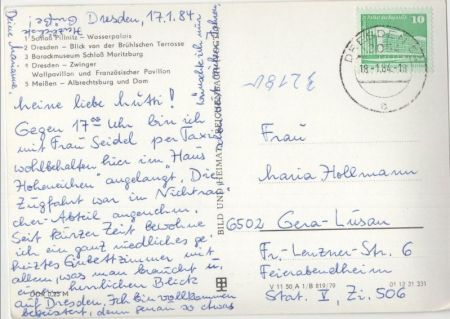 Dresden, 17.1.84
1 Schloß Pillnitz - Wasserpalais
2 Dresden - Blick von der Brühlschen Terrasse
3 Barockmuseum Schloß Moritzburg
4 Dresden - Zwinger
Wallpavillon und Französischer Pavillon
5 Meißen - Albrechtsburg und Dom
Meine liebe Mutti!
Gegen 17 00 Uhr bin ich
mit Frau Seidel per Taxi
wohlbehalten hier im "Haus
Hoheneichen" angelangt. Die
Zugfahrt war im Nichtrau-
cher-Abteil angenehm.
Seit kurzer Zeit bewohne
ich ein ganz niedliches ge-
heiztes Einbettzimmer mit
allem, was man braucht u.
einen herrlichen Blick
auf Dresden. Ich bin vollkommen
begeistert, denn genau so etwas
wünschte ich mir
Herzliche
Grüße!
Deine Marianne
BILD UND HEIMAT REICHENBACH
10
18-1.84
32181
Frau
Maria Hollmann
6502 Gera-Lusan
Fr.-Lenzner-Str. 6
Feierabendheim
Stat. V Zi. 506
V 11 50 A 1/B 819/79
01 12 31 331